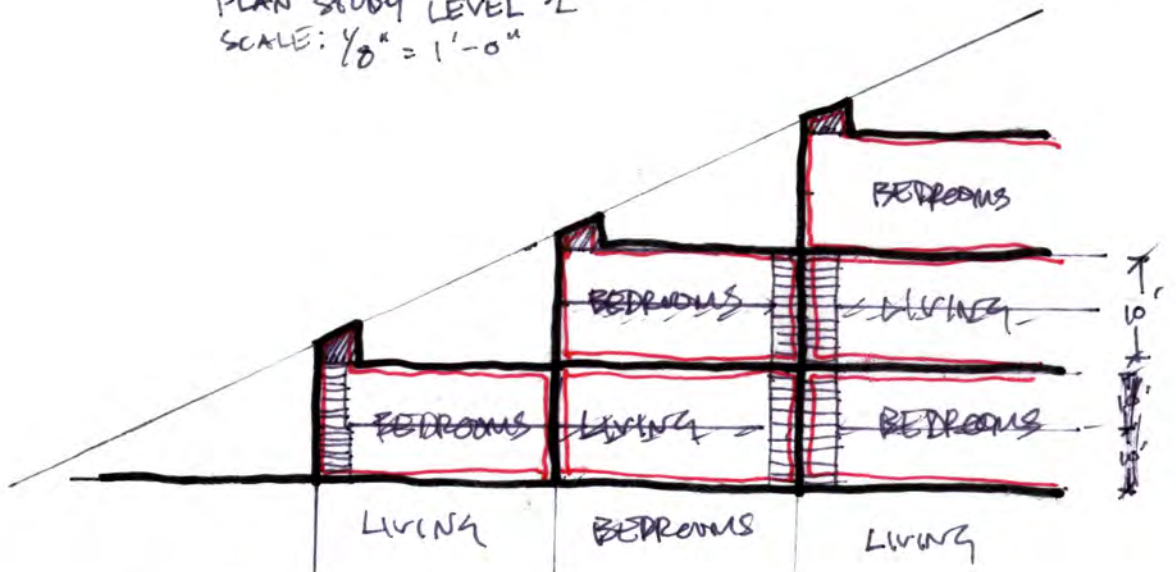 PLAN STUDY LEVEL 2
SCALE: 1/8" = 1'-0"
BEDROOMS
BEDROOMS LIVING
BEDROOMS LIVING BEDROOMS
LIVING BEDROOMS LIVING